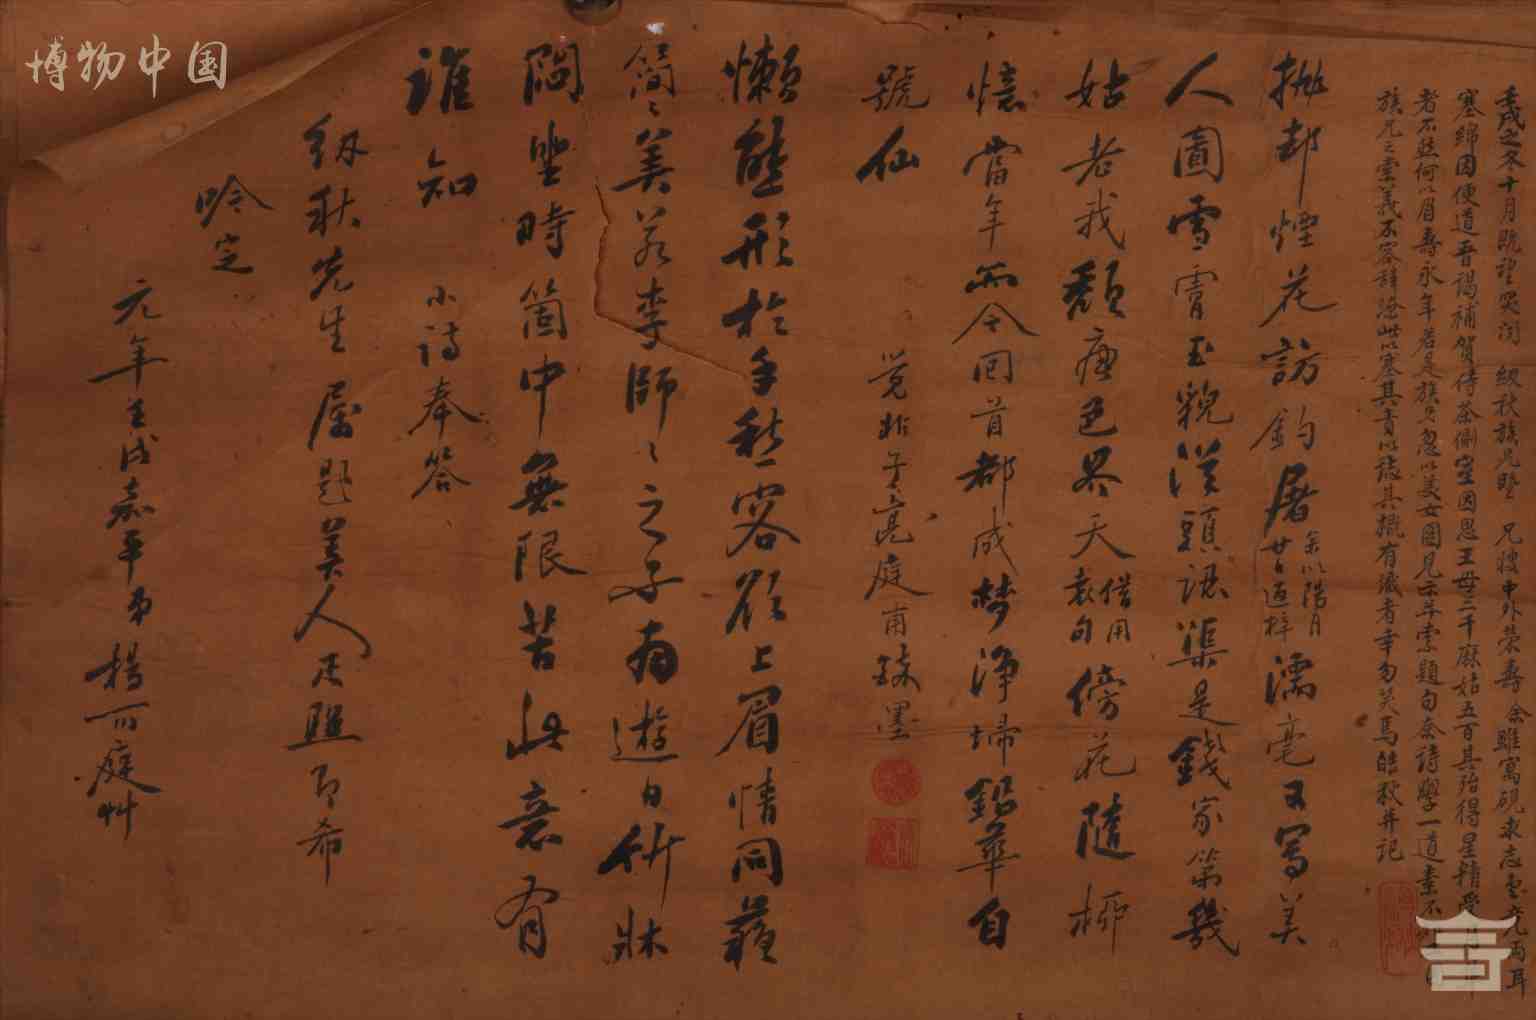 博物中国
壬戌之冬十月既望 紉秋族兄 兄嫂中外榮壽余雖寓硯求志 兩耳
塞綿因便道晋謁補賀侍茶側室因思王母三千麻姑五百其殆得星精
者不然何以眉壽永年若是族兄忽以美女圖見示并索題句余詩學一道素不
族兄之雲義不容辭 以塞其責以誌其概有識者幸勿笑焉 并記
拋却煙花訪釣屠 余以陽月廿日返梓 濡毫又寫美
人圖雪膚玉貌從頭認渠是錢家第幾
姑老我頹唐色界天 借用袁句 傍花隨柳
憶當年而今回首都成梦淨埽鉛華自
號仙
覺非 庭甫 墨
懶態形於手愁容顧上眉情同蘇
簡簡美若李師師之子宵遊日竹牀
悶坐時箇中無限苦此意有
誰知 小詩奉答
紉秋先生屬題美人 照即希
吟定
元年壬戌嘉平弟楊 庭艸